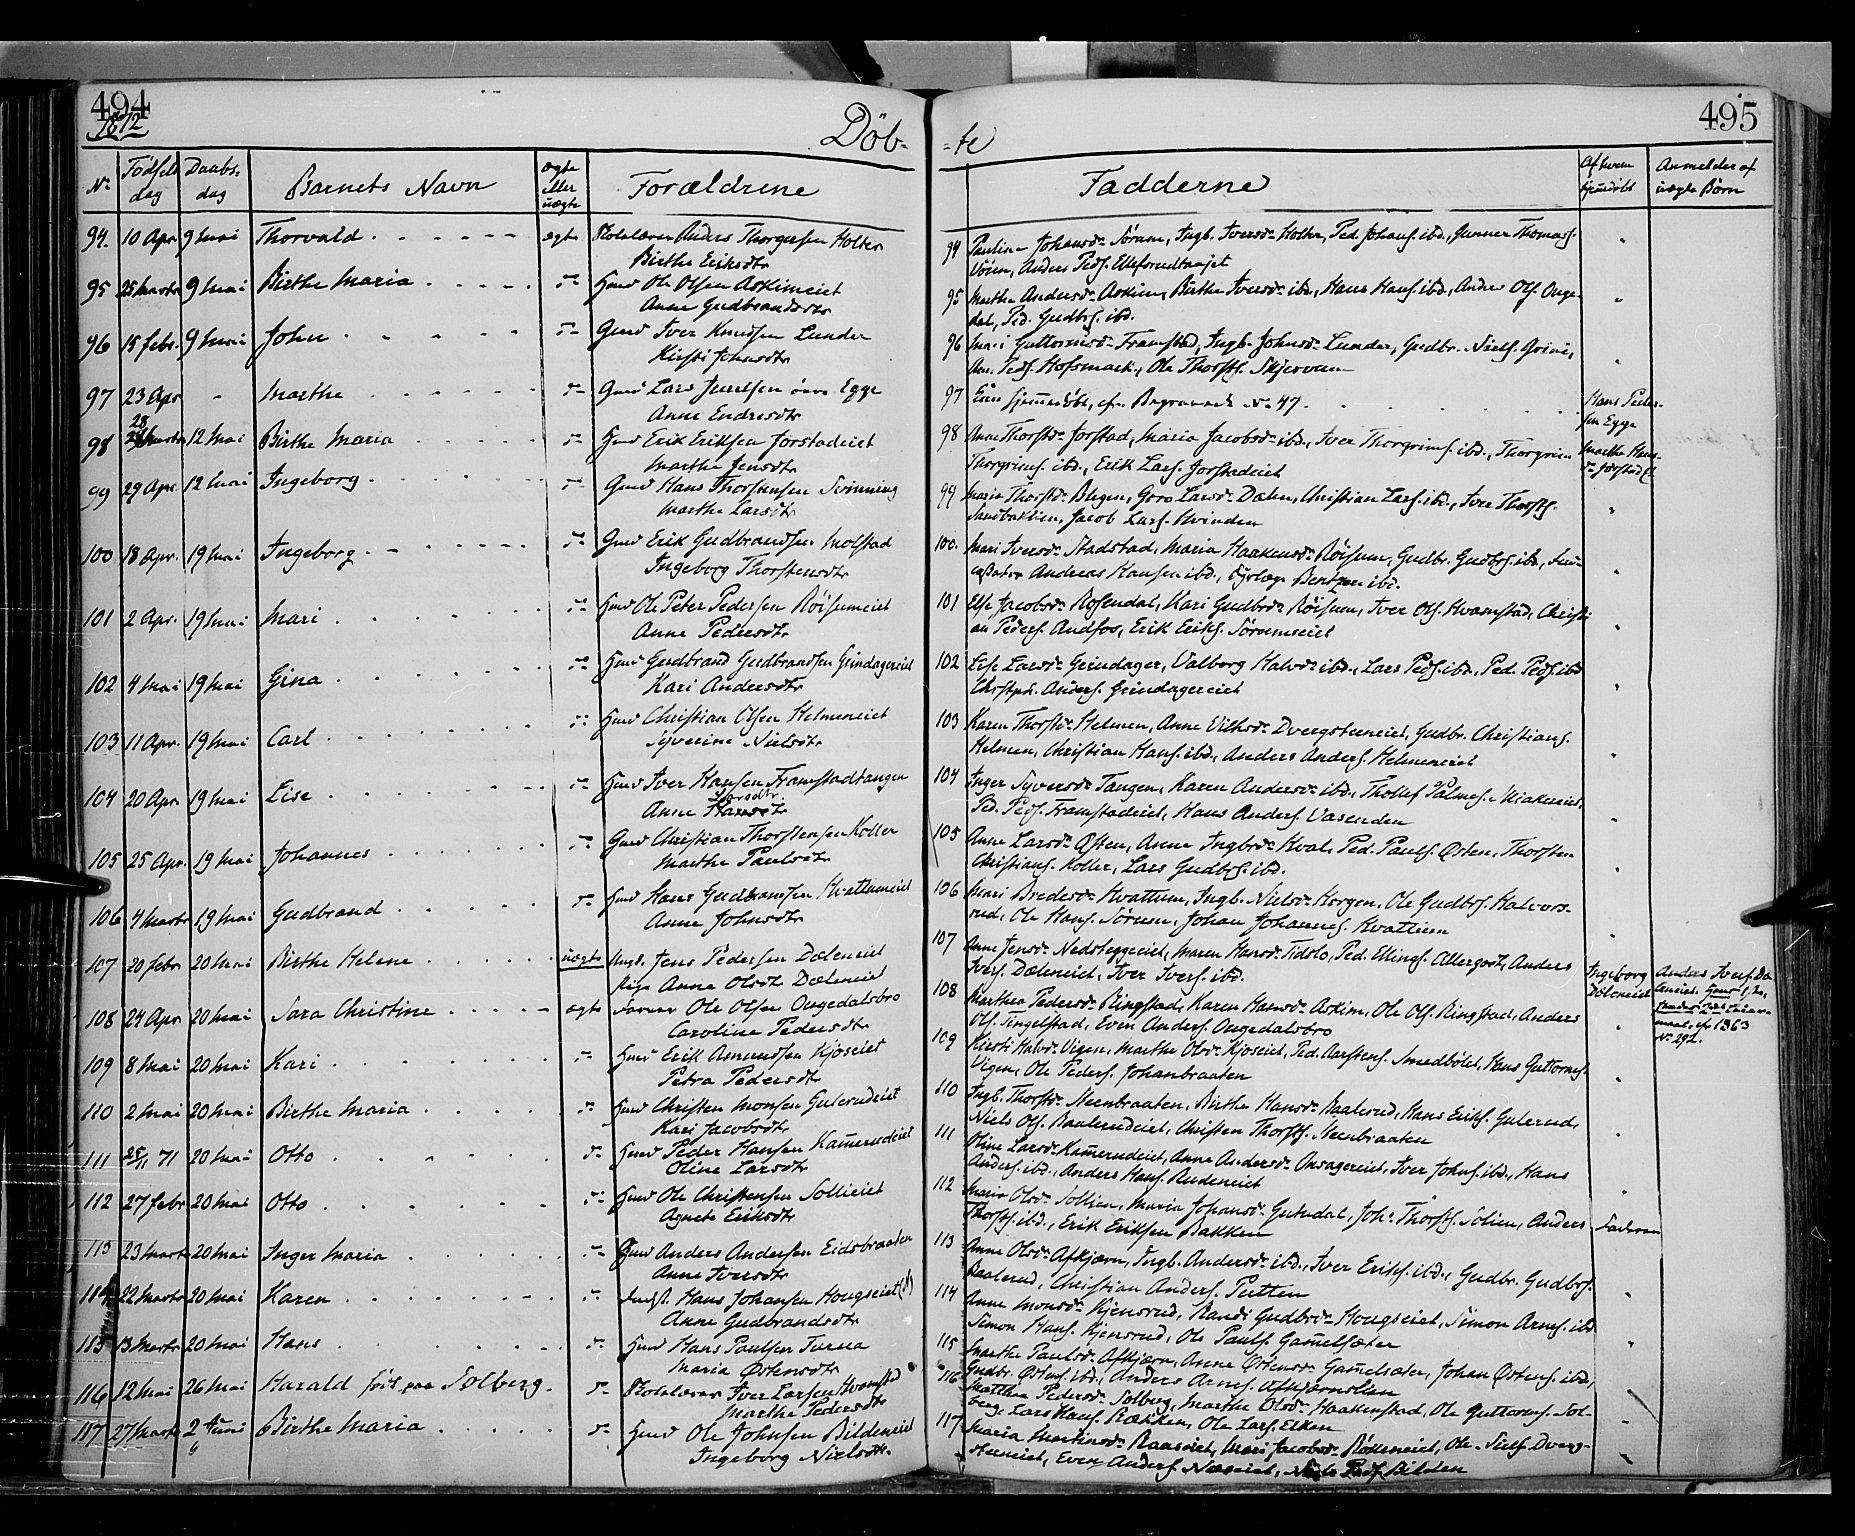 494
1872
Döb-
No
Fødsels dag
Daabs- dag
Barnets Navn
ægte eller uægte
Forældrene
94. 10 Apr 9 Mai Thorvald ægte Skolelærer Anders Thorgersen Holter
Birthe Eriksdtr
95 25 Marts 9 Mai Birthe Maria do Hmd Ole Olsen Askimeiet
Anne Gudbrandsdtr
96 15 febr. 9 Mai John do Gmd Iver Knudsen Lunder
Kirsti Johnsdtr
97 23 Apr - Marthe do Gmd Lars Juulsen øvre Egge
Anne Endresdtr
98 28 Marts 12 Mai Birthe Maria do Hmd Erik Eriksen Jorstadeiet
Marthe Jensdtr
99 29 Apr. 12 Mai Ingeborg do Gmd Hans Thorstensen Svinning
Marthe Larsdtr
100 18 Apr. 19 Mai Ingeborg do Gmd Erik Gudbrandsen Molstad
Ingeborg Thorstensdtr
101 2 Apr. 19 Mai Mari do Hmd Ole Peter Pedersen Röisumeiet
Anne Pedersdtr
102 4 Mai 19 Mai Gina do Hmd Gudbrand Gudbrandsen Grindagereiet
Kari Andersdtr
103 11 Apr. 19 Mai Carl do Hmd Christian Olsen Helmeneiet
Syverine Nielsdtr
104 20 Apr 19 Mai Lise do Hmd Iver Hansen Framstadtangen
Larsdtr
Anne Hansdtr
105 25 Apr. 19 Mai Johannes do Gmd Christian Thorstensen Koller
Marthe Paulsdtr
106 4 Marts 19 Mai Gudbrand do Hmd Hans Gudbrandsen Hvattumeiet
Anne Johnsdtr
107 20 febr 20 Mai Birthe Helene uægte Ungk. Jens Pedersen Dæleneiet
Pige Anne Olsdtr Dæleneiet
108 24 Apr 20 Mai Sara Christine ægte Ole Olsen Ongedalsbro
Caroline Pedersdtr
109 8 Mai 20 Mai Kari do Hmd Erik Amundsen Kjoseiet
Petra Pedersdtr
110 2 Mai 20 Mai Birthe Maria do Hmd Christen Monsen Gulerudeiet
Kari Jacobsdtr
111 25/11 71 20 Mai Otto do Hmd Peder Hansen Kamerudeiet
Oline Larsdtr
112 27 febr 20 Mai Otto do Hmd Ole Christensen Sollieiet
Agnete Eriksdtr
113 23 Marts 20 Mai Inger Maria do Gmd Anders Andersen Eidsbraaten
Anne Iversdtr
114 22 Marts 20 Mai Karen do Indst. Hans Johansen Hougseiet
Anne Gudbrandsdtr
115 13 Marts 20 Mai Hans do Hmd Hans Paulsen Turua
Maria Østensdtr
116 12 Mai 26 Mai Harald født paa Solberg. do Skolelærer Iver Larsen Hvamstad
Marthe Pedersdtr
117 27 Marts 2 Juni Birthe Maria do Hmd Ole Johnsen Bildeneiet
Ingeborg Nielsdtr.
495
-te
Fadderne
Af hvem hjemmedøbt
Anmelder af uægte Börn
94 Pauline Johansdr Sörum, Ingb. Iversdr Holter, Ped. Johans. ibd., Gunner Thomass.
Vöien, Anders Peds. Ellefsrudtaajet
95 Marthe Andersdr Askim, Birthe Iversdr ibd., Hans Hans. ibd., Anders Ols. Onge-
dal, Ped. Gudbrs. ibd.
96 Mari Guttormsdr Framstad, Ingb. Johnsdr Lunder, Gudbr. Niels. Grini,
Peds. Hofsmark., Ole Thorsts. Skjervum
97 hjemmedøbt, cfr. Begravede No 47. Hans Peder-
sen Egge
98 Anne Thorstdr Jorstad, Maria Jacobsdr ibd., Iver Thorgrims. ibd., Thorgrim Marthe Hans-
Thorgrims. ibd., Erik Lars. Jorstadeiet dr Jorstadet
99 Maria Thorstdr Bugen, Goro Larsdr Dælen, Christian Lars. ibd., Iver Thorsts.
Sandbakken, Jacob Lars. Hvinden
100 Mari Iversdr Stadstad, Maria Haakensdr Röisum, Gudbr. Gudbrs. ibd.,
Andreas Hansen ibd., Dyrlæge Bentzen ibd.
101 Else Jacobsdr Rosendal, Kari Gudbrdr Röisum, Iver Ols. Hvamstad, Christi-
an Peders. Andfos, Erik Eriks. Sörumseiet
102 Lise Larsdr Grindager, Valborg Halvdr ibd., Lars Peds. ibd., Ped. Peds. ibd
Chrstph. Anders. Grindagereiet
103 Karen Thorstdr Helmen, Anne Eriksdr Dvergsteneiet, Gudbr. Christians.
Helmen, Christian Hans. ibd., Anders Anders. Helmeneiet
104 Inger Syversdr Tangen, Karen Andersdr ibd., Thollef Palmes.
Ped. Peds. Framstadeiet, Hans Anders. Vasenden
105 Anne Larsdr Østen, Anne Ingbrdr Hval, Ped. Pauls. Østen, Thorsten
Christians. Koller, Lars Gudbrs. ibd.
106 Mari Bredesdr Hvattum, Ingb. Nielsdr Horgen, Ole Gudbrs. Halvors-
rud, Ole Hans. Sörum, Johan Johannes. Hvattum
107 Anne Jensdr Nedreeggeeiet, Maren Hansdr Tidslo, Ped. Ellings. Allergodt, Anders
Ivers. Dæleneiet, Iver Ivers. ibd.
Ingeborg Döleneiet
Anders Ivers. Dæ-
leneiet.
cfr 1863
No 292.
108 Marthea Pedersdr Ringstad, Karen Hansdr Askim, Ole Ols. Ringstad, Anders
Ols. Tingelstad, Even Anders. Ongedalsbro
109 Kirsti Halvdr Vigen, Marthe Olsdr Kjoseiet, Ped. Smedbölet, Hans Guttorms.
Vigen, Ole Peders. Johanbraaten
110 Ingb. Thorstdr Steenbraaten, Birthe Hansdr Baalerud, Hans Eriks. Gulerud,
Niels Ols. Baalerudeiet, Christen Thorsts. Steenbraaten
111 Oline Larsdr Kamerudeiet, Anne Andersdr Onsagereiet, Iver Johns. ibd., Hans
Anders. ibd., Anders Hans. Rudeneiet
112 Maria Olsdr Sollien, Maria Johansdr Guldal, Joh. Thorsts. Solien, Anders
Thorsts. ibd., Erik Eriksen Bakken
113 Anne Olsdr Afkjærn, Ingb. Andersdr ibd., Iver Eriks. ibd., Gudbr. Gudbrs.
Baalerud, Christian Anders. Putten
114 Anne Monsdr Kjensrud, Randi Gudbrdr Hougseiet, Simon Arnes. ibd
Simon Hans. Kjensrud, Ole Pauls. Gamelsæter
115 Marthe Paulsdr Afkjærn, Anne Østensdr Gamelsæter, Johan Østens. ibd.,
Gudbr. Østens. ibd., Anders Arnes. Afkjærnslien
116 Matthea Pedersdr Solberg, Marthe Olsdr Haakenstad, Ole Guttorms. Sol-
berg, Lars Hans. Rækken, Ole Lars. Elken
117 Maria Martinsdr Raaseiet, Mari Jacobsdr Röseneiet, Ole Dverg-
steneiet, Even Anders. Næseiet, Niels Peds. Bilden